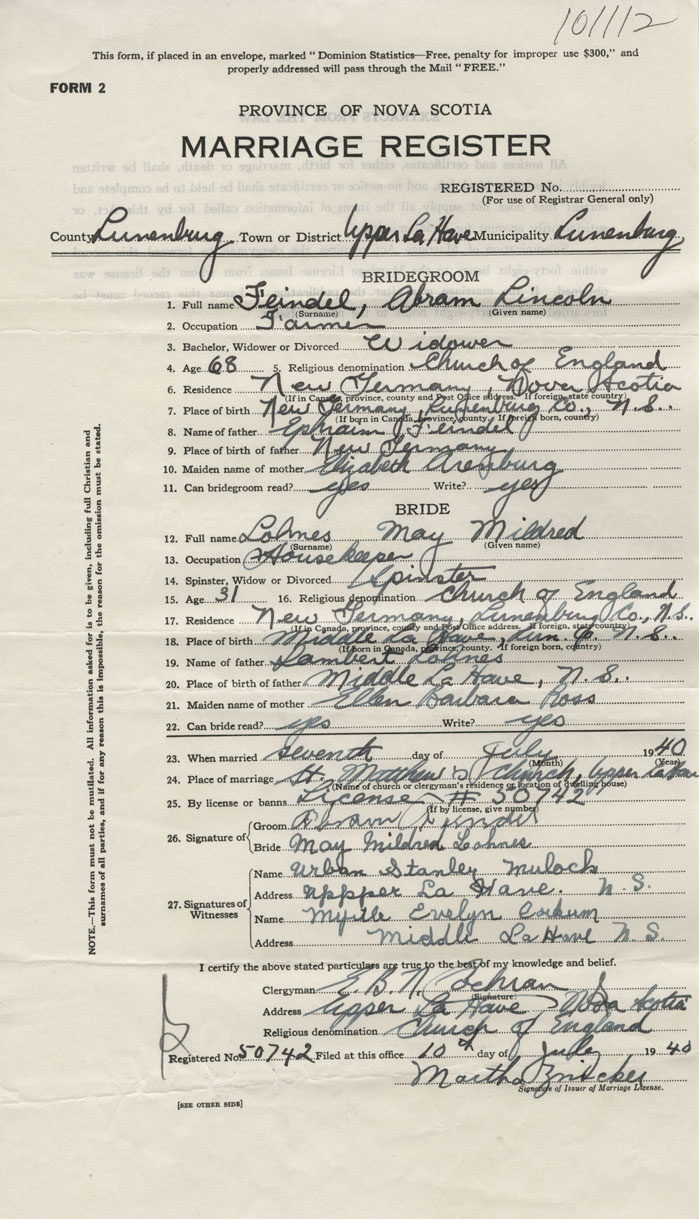 101112
This form, if placed in an envelope, marked " Dominion Statistics—Free, penalty for improper use $300," and
properly addressed will pass through the Mail " FREE."
FORM 2
PROVINCE OF NOVA SCOTIA
MARRIAGE REGISTER
REGISTERED No.
(For use of Registrar General only)
County Lunenburg Town or District Upper La Have Municipality Lunenburg
BRIDEGROOM
1. Full name Feindel, Abram Lincoln
(Surname) (Given name)
2. Occupation Farmer
3. Bachelor, Widower or Divorced Widower
4. Age 68 5. Religious denomination Church of England
6. Residence New Germany, Nova Scotia
(If in Canada, province, county and Post Office address. If foreign, state country)
7. Place of birth New Germany, Lunenburg Co., N.S.
(If born in Canada, province, county. If foreign born, country)
8. Name of father Ephraim Feindel
9. Place of birth of father New Germany
10. Maiden name of mother Elizabeth Arenburg
11. Can bridegroom read? yes Write? yes
BRIDE
12. Full name Lohnes May Mildred
(Surname) (Given name)
13. Occupation Housekeeper
14. Spinster, Widow or Divorced Spinster
15. Age 31 16. Religious denomination Church of England
17. Residence New Germany, Lunenburg Co., N.S.
(If in Canada, province, county and Post Office address. If foreign, state country)
18. Place of birth Middle La Have, Lun. Co. N.S.
(If born in Canada, province, county. If foreign born, country)
19. Name of father Lambert Lohnes
20. Place of birth of father Middle La Have, N.S.
21. Maiden name of mother Ellen Barbara Ross
22. Can bride read? yes Write? yes
23. When married seventh day of July 1940
(Month) (Year)
24. Place of marriage St. Matthew's Church, Upper La Have
(Name of church or clergyman's residence or location of dwelling house)
25. By license or banns License # 50742
(If by license, give number)
26. Signature of
Groom Abram Feindel
Bride May Mildred Lohnes
27. Signatures of Witnesses
Name Urban Stanley Mulock
Address Uppper La Have. N.S.
Name Myrtle Evelyn Corkum
Address Middle LaHave N.S.
I certify the above stated particulars are true to the best of my knowledge and belief.
Clergyman E. B. N.
(Signature)
Address Upper La Have, Nova Scotia
Religious denomination Church of England
Registered No. 50742 Filed at this office 10th day of July 1940
Martha Zwicker
Signature of Issuer of Marriage License.
[SEE OTHER SIDE]
NOTE.—This form must not be mutilated. All information asked for is to be given, including full Christian and
surnames of all parties, and if for any reason this is impossible, the reason for the omission must be stated.